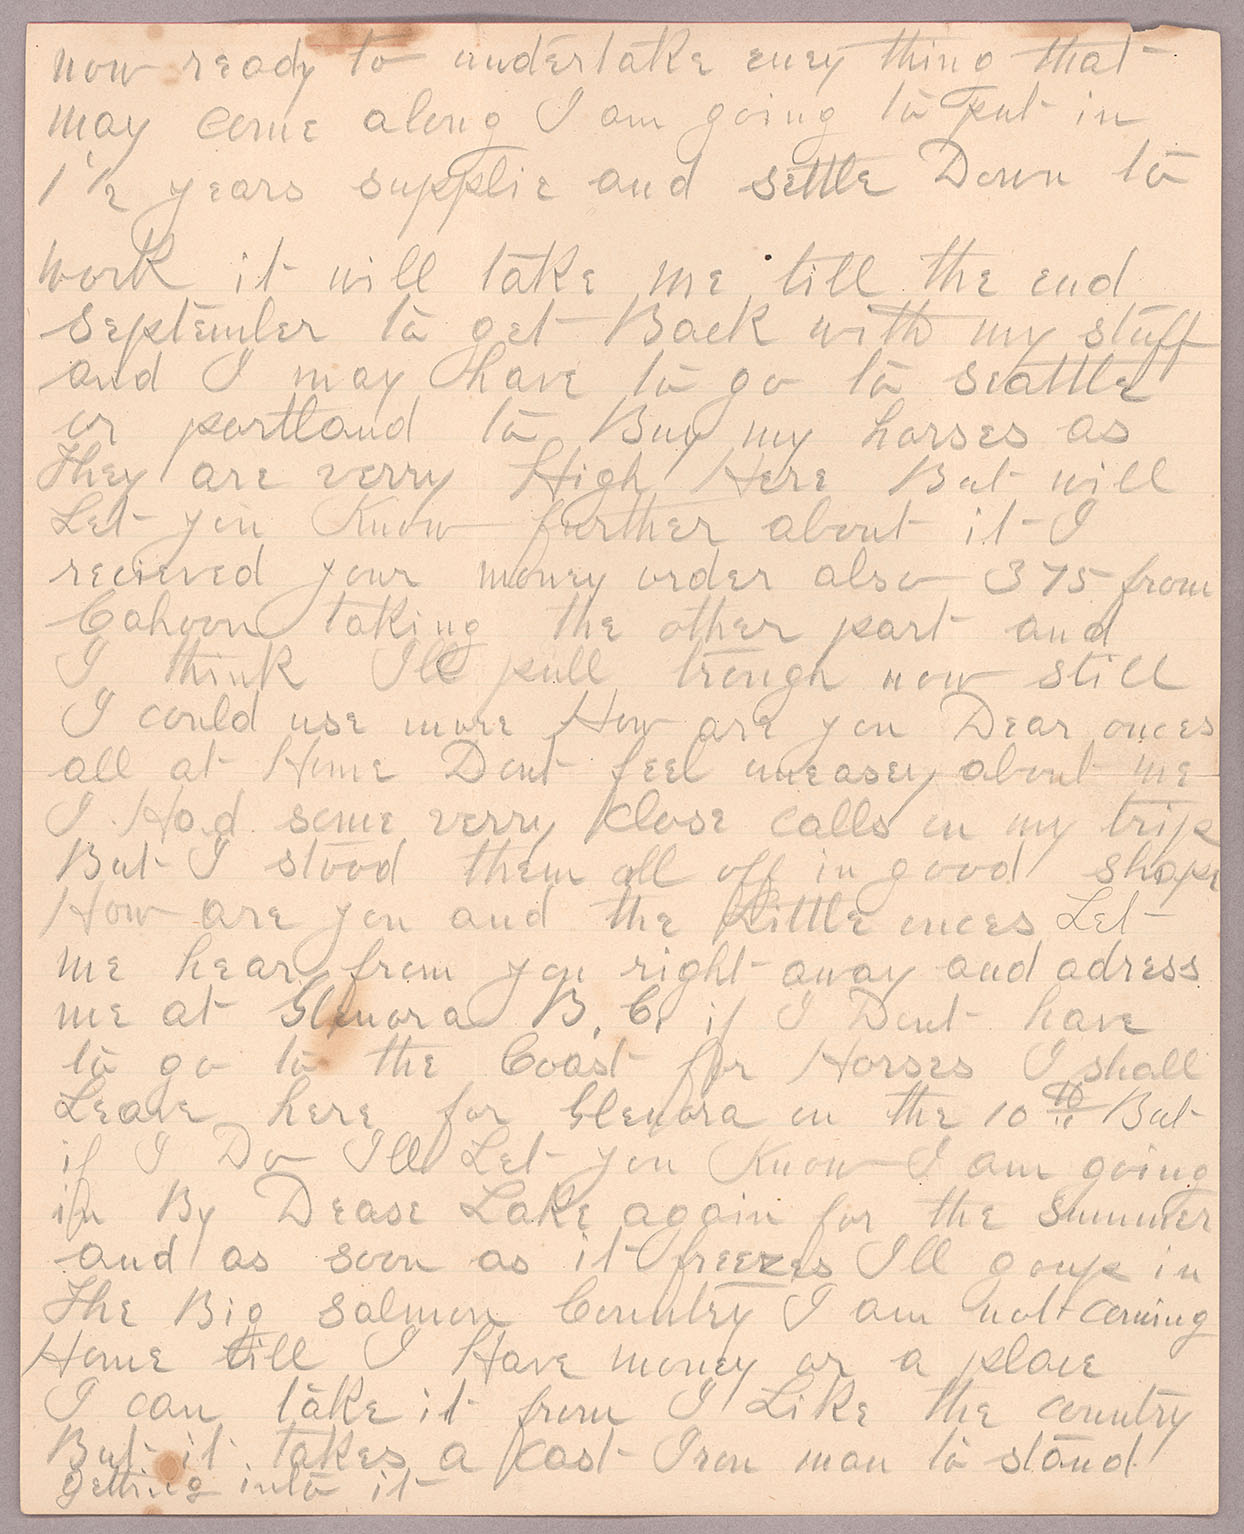 now ready to undertake eney thing that
may come along I am going to put in
1 1/2 years supplie and settle Down to
work it will take me till the end
September to get Back with my stuff
and I may have to go to seattle
or portland to Buy my horses as
They are verry High Here But will
Let you Know further about it I
recieved your money order also 375 from
Cahoon taking the other part and
I think Ill pull trough now still
I could use more How are you Dear onces
all at Home Dont feel uneasey about me
I Had some verry close calls on my trip
But I stood them all off in good shape
How are you and the Little onces Let
me hear from you right away and adress
me at Glenora B. C. if I Dont have
to go to the Coast for Horses I shall
Leave here for Glenora on the 10th But
if I Do Ill Let you Know I am going
in By Dease Lake again for the Summer
and as soon as it freezes Ill goup in
The Big Salmon Country I am not coming
Home till I Have money or a place
I can take it from I Like the country
But it takes a cast Iron man to stand
getting into it